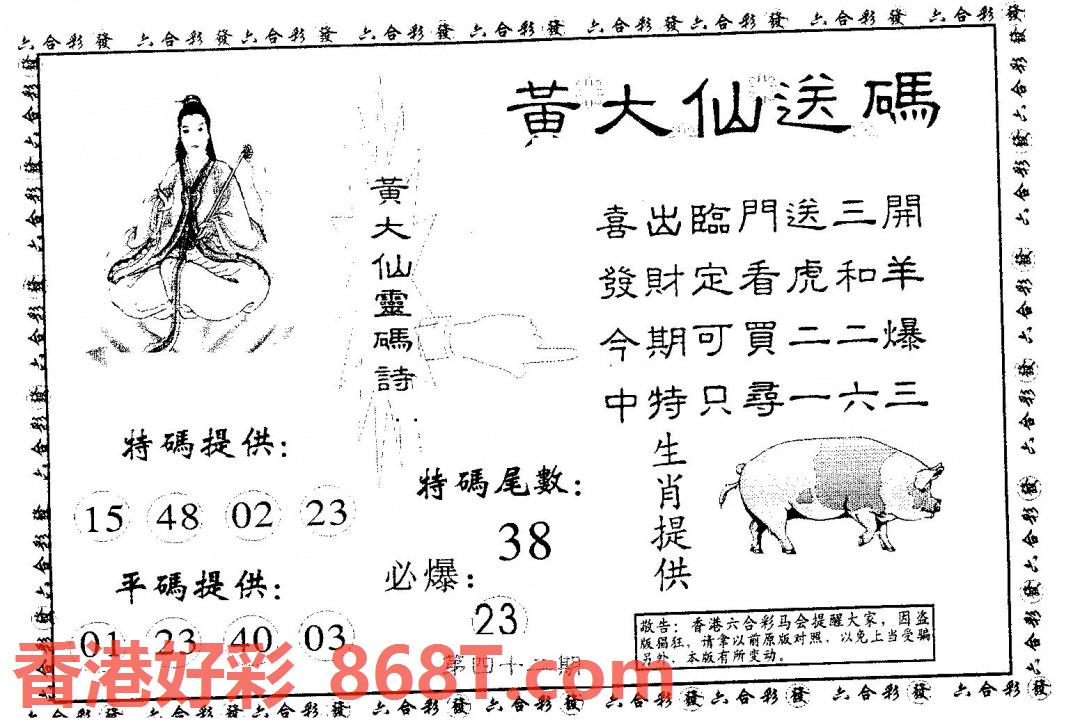 六合彩發 六合彩發六合彩發 六合彩發 六合彩發 六合彩發 六合彩發 六合彩發 六合彩發
黃大仙送碼
黃大仙靈碼詩
喜出臨門送三開
發財定看虎和羊
今期可買二二爆
中特只尋一六三
特碼提供：
15 48 02 23
特碼尾數：
38
平碼提供：
01 23 40 03
必爆：
23
生肖提供
敬告：香港六合彩马会提醒大家，因盗
版猖狂，请拿以前原版对照，以免上当受骗
另外，本版有所变动。
香港好彩 868T.com